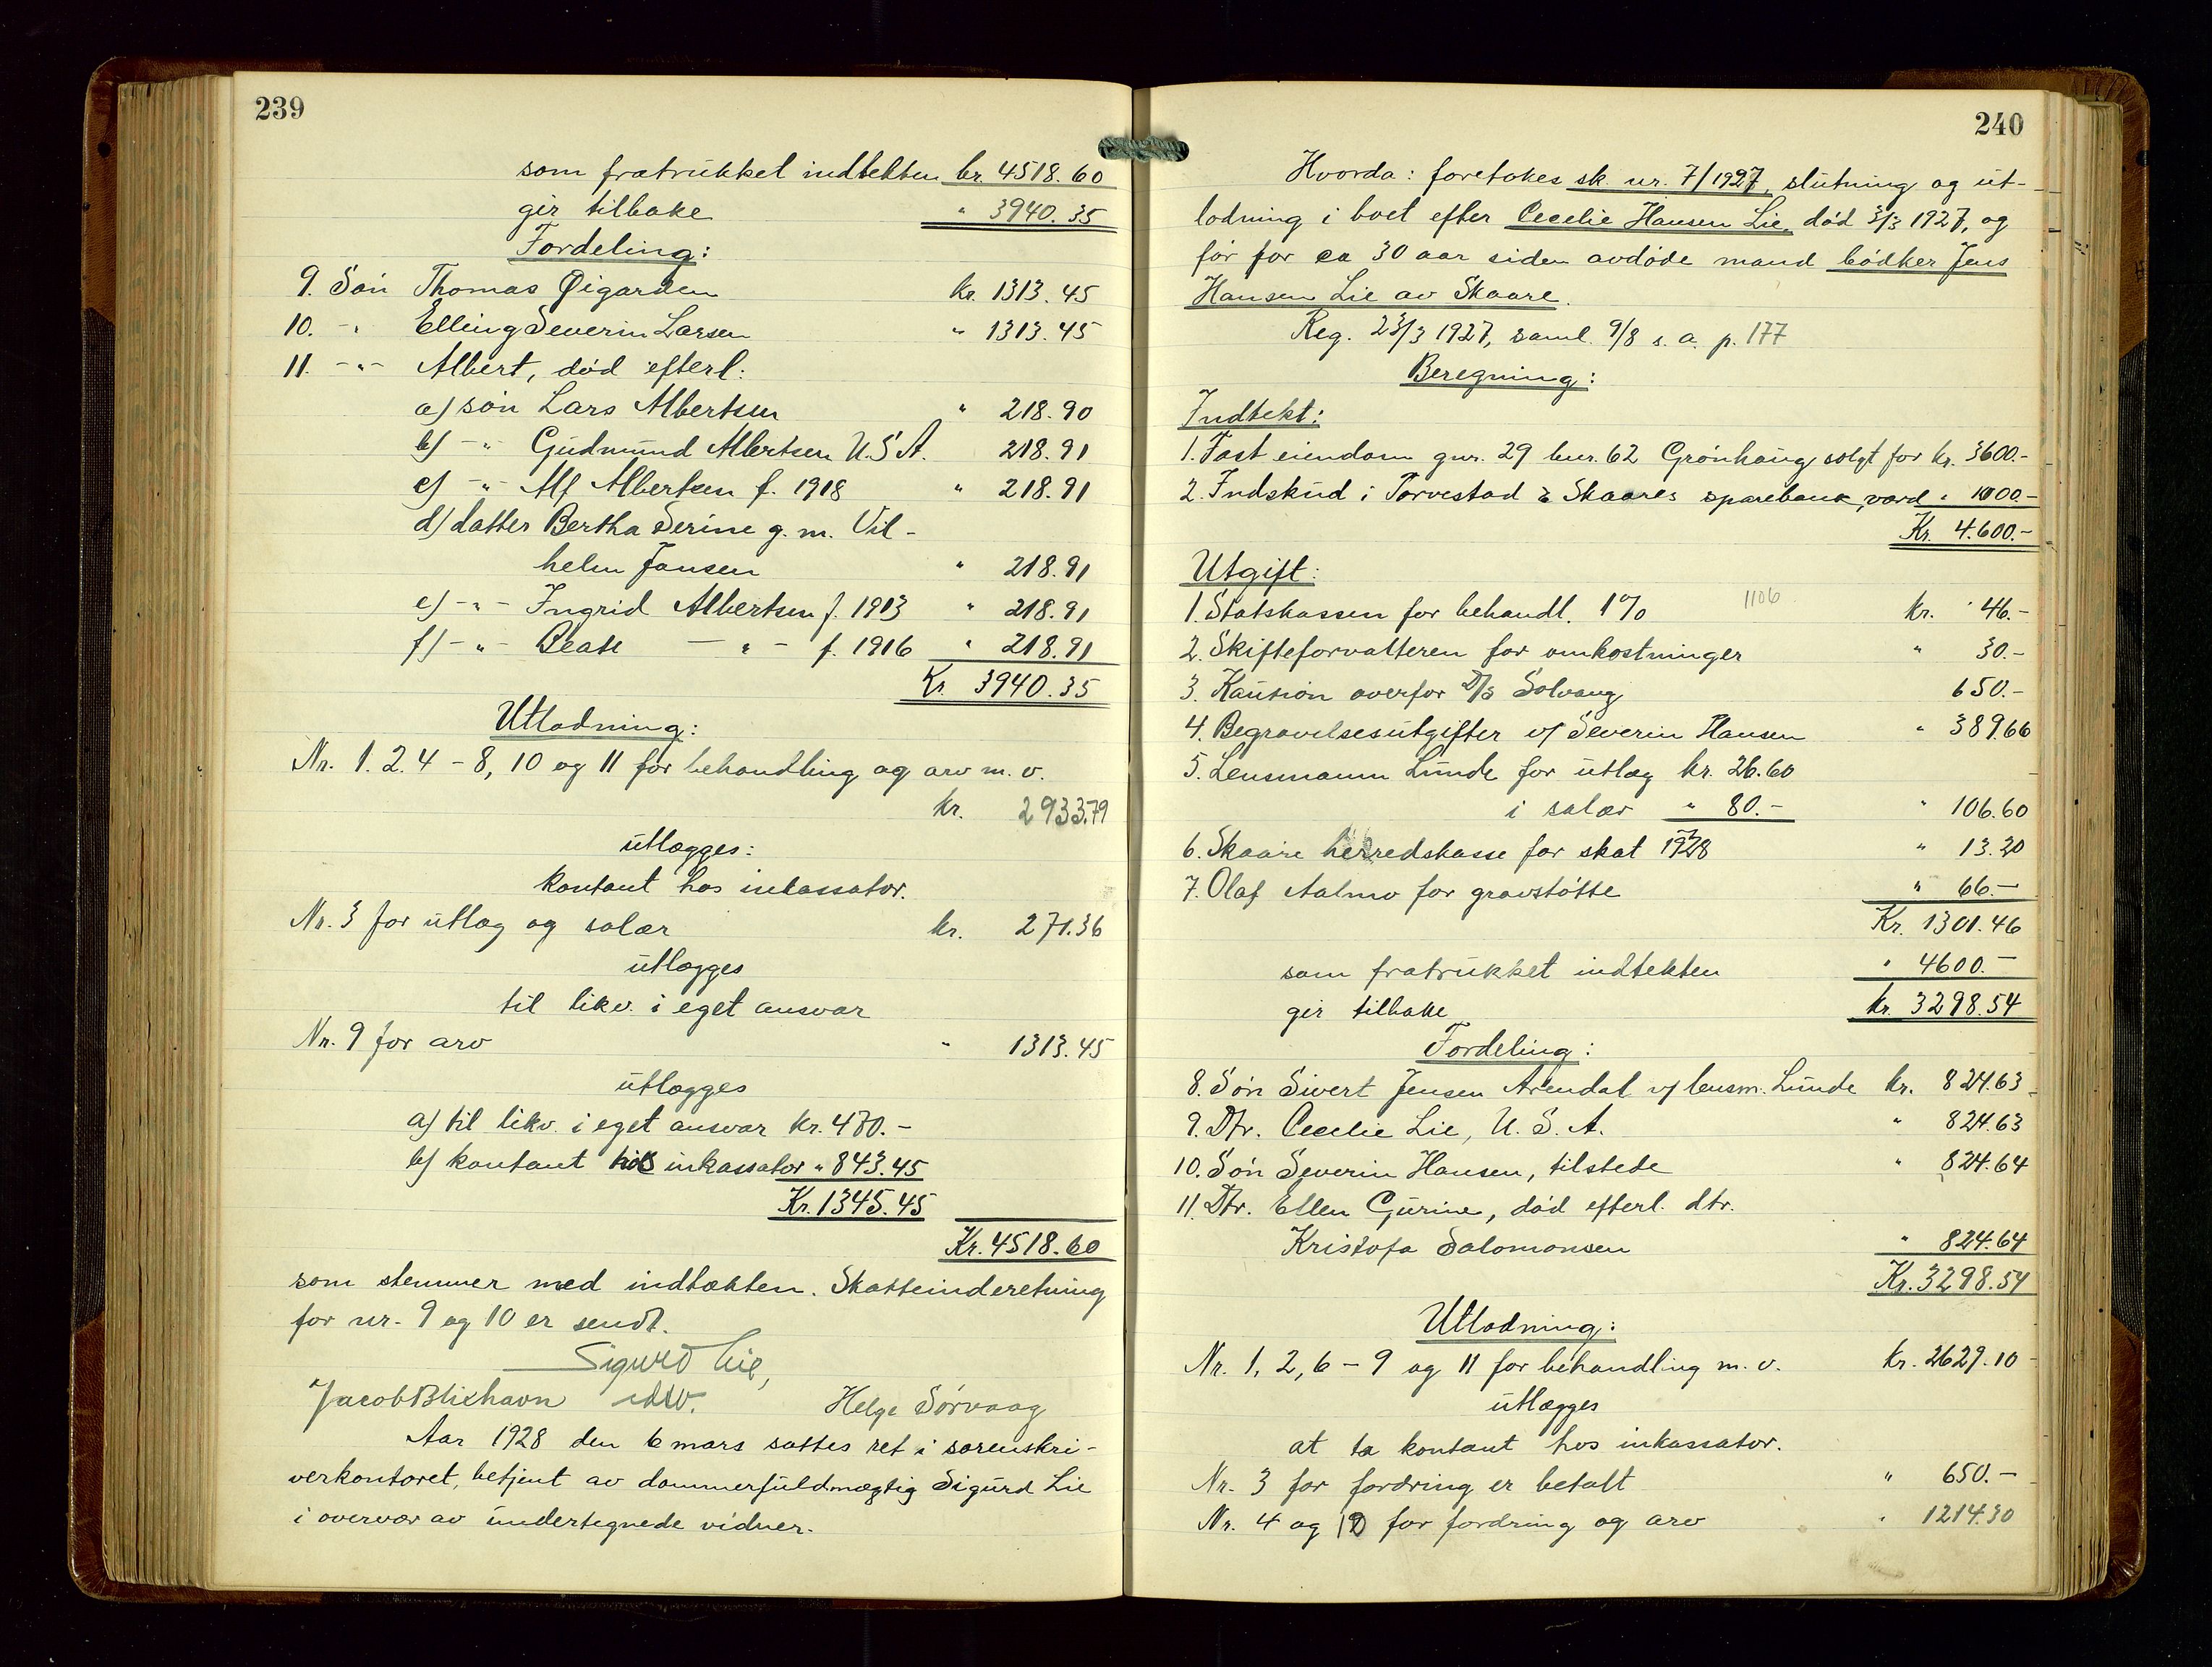 239
som fratrukket indtekten kr. 4518.60
gir tilbake " 3940.35
Fordeling:
9. Søn Thomas Øigarden kr. 1313.45
10. -"- Elling Severin Larsen " 1313.45
11. -"- Albert, død efterl:
a) søn Lars Albertsen " 218.90
b) -"- Gudmund Albertsen U.S.A. 218.91
c) -"- Alf Albertsen f. 1918 " 218.91
d) datter Bertha Serine g. m. Vil-
helm Jansen " 218.91
e) -"- Ingrid Albertsen f. 1913 " 218.91
f) -"- Beate -"- f. 1916 " 218.91
Kr. 3940.35
Utlodning:
Nr. 1. 2. 4 - 8, 10 og 11 for behandling og arv m. v.
kr. 2933.79
utlægges:
kontant hos inkassator.
Nr. 3 for utlæg og salær kr. 271.36
utlægges
til likv. i eget ansvar
Nr. 9 for arv " 1313.45
utlægges
a) til likv. i eget ansvar kr. 470.-
b) kontant hos inkassator " 843.45
Kr. 1345.45
Kr. 4518.60
som stemmer med indtækten. Skatteinderetning
for nr. 9 og 10 er sendt.
Sigurd Lie,
Jacob Blikhavn Helge Sørvaag
Aar 1928 den 6 mars sattes ret i sorenskri-
verkontoret, betjent av dommerfuldmægtig Sigurd Lie
i overvær av undertegnede vidner.
240
Hvorda: foretokes sk. nr. 7/1927, slutning og ut-
lodning i boet efter Cecelie Hansen Lie, død 3/3 1927, og
før for ca 30 aar siden avdøde mand bødker Jens
Hansen Lie av Skaare.
Reg. 23/3 1927, saml. 9/8 s. a. p. 177
Beregning:
Indtekt:
1. Fast eiendom gnr. 29 bnr. 62 Grønhaug solgt for kr. 3600.-
2. Indskud i Torvestad & Skaares sparebank, værd " 1000.-
Kr. 4.600.-
Utgift:
1. Statskassen for behandl. 1% 1106 kr. 46.-
2. Skifteforvalteren for omkostninger " 30.-
3. Kausion overfor D/S Solvang 650.-
4. Begravelsesutgifter v/ Severin Hansen " 389.66
5. Lensmann Lunde for utlæg kr. 26.60
i salær " 80.- " 106.60
6. Skaare herredskasse for skat 1928 " 13.20
7. Olaf Aalmo for gravstøtte " 66.-
Kr. 1301.46
som fratrukket indtekten " 4600.-
gir tilbake kr. 3298.54
Fordeling:
8. Søn Sivert Jensen Arendal v/ lensm. Lunde kr. 824.63
9. Dtr. Cecelie Lie, U. S. A. " 824.63
10. Søn Severin Hansen, tilstede " 824.64
11. Dtr. Ellen Gurine, død efterl. dtr.
Kristofa Salomonsen " 824.64
Kr. 3298.54
Utlodning:
Nr. 1, 2, 6 - 9 og 11 for behandling m. v. kr. 2629.10
utlægges
at ta kontant hos inkassator.
Nr. 3 for fordring er betalt " 650.-
Nr. 4 og 10 for fordring og arv " 1214.30